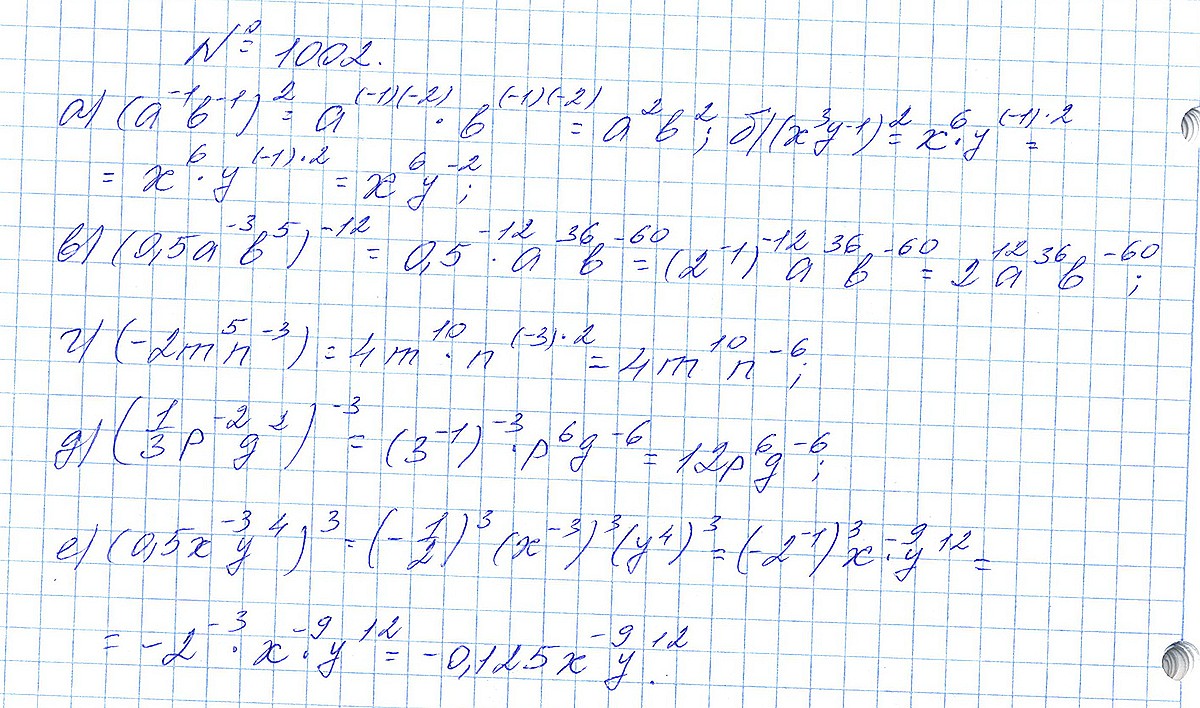 № 1002.
а) (a⁻¹b⁻¹)² = a⁽⁻¹⁾⁽⁻²⁾ · b⁽⁻¹⁾⁽⁻²⁾ = a²b²; б) (x³y⁻¹)² = x⁶·y⁽⁻¹⁾·² =
= x⁶·y⁽⁻¹⁾·² = x⁶y⁻²;
в) (0,5a⁻³b⁵)⁻¹² = 0,5⁻¹²·a³⁶b⁻⁶⁰ = (2⁻¹)⁻¹²a³⁶b⁻⁶⁰ = 2¹²a³⁶b⁻⁶⁰;
г) (-2m⁵n⁻³) = 4m¹⁰·n⁽⁻³⁾·² = 4m¹⁰n⁻⁶;
д) (1/3 p⁻²g²)⁻³ = (3⁻¹)⁻³·p⁶g⁻⁶ = 12p⁶g⁻⁶;
е) (0,5x⁻³y⁴)³ = (-1/2)³(x⁻³)³(y⁴)³ = (-2⁻¹)³x⁻⁹·y¹² =
= -2⁻³·x⁻⁹·y¹² = -0,125x⁻⁹y¹².